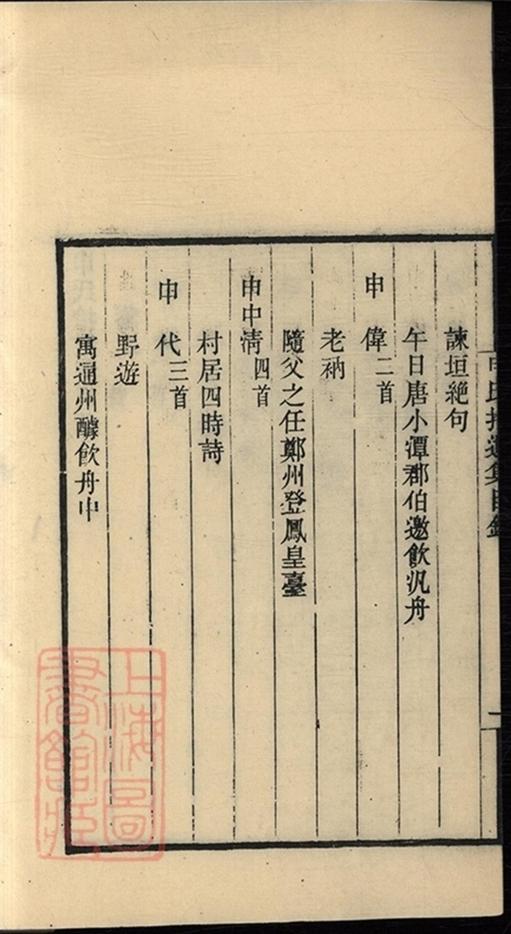 諫垣絶句
午日唐小潭郡伯邀飲汎舟
申偉二首
老衲
隨父之任鄭州登鳳皇臺
申中清四首
村居四時詩
申代三首
野遊
寓通州醵飲舟中
上海圖書館藏